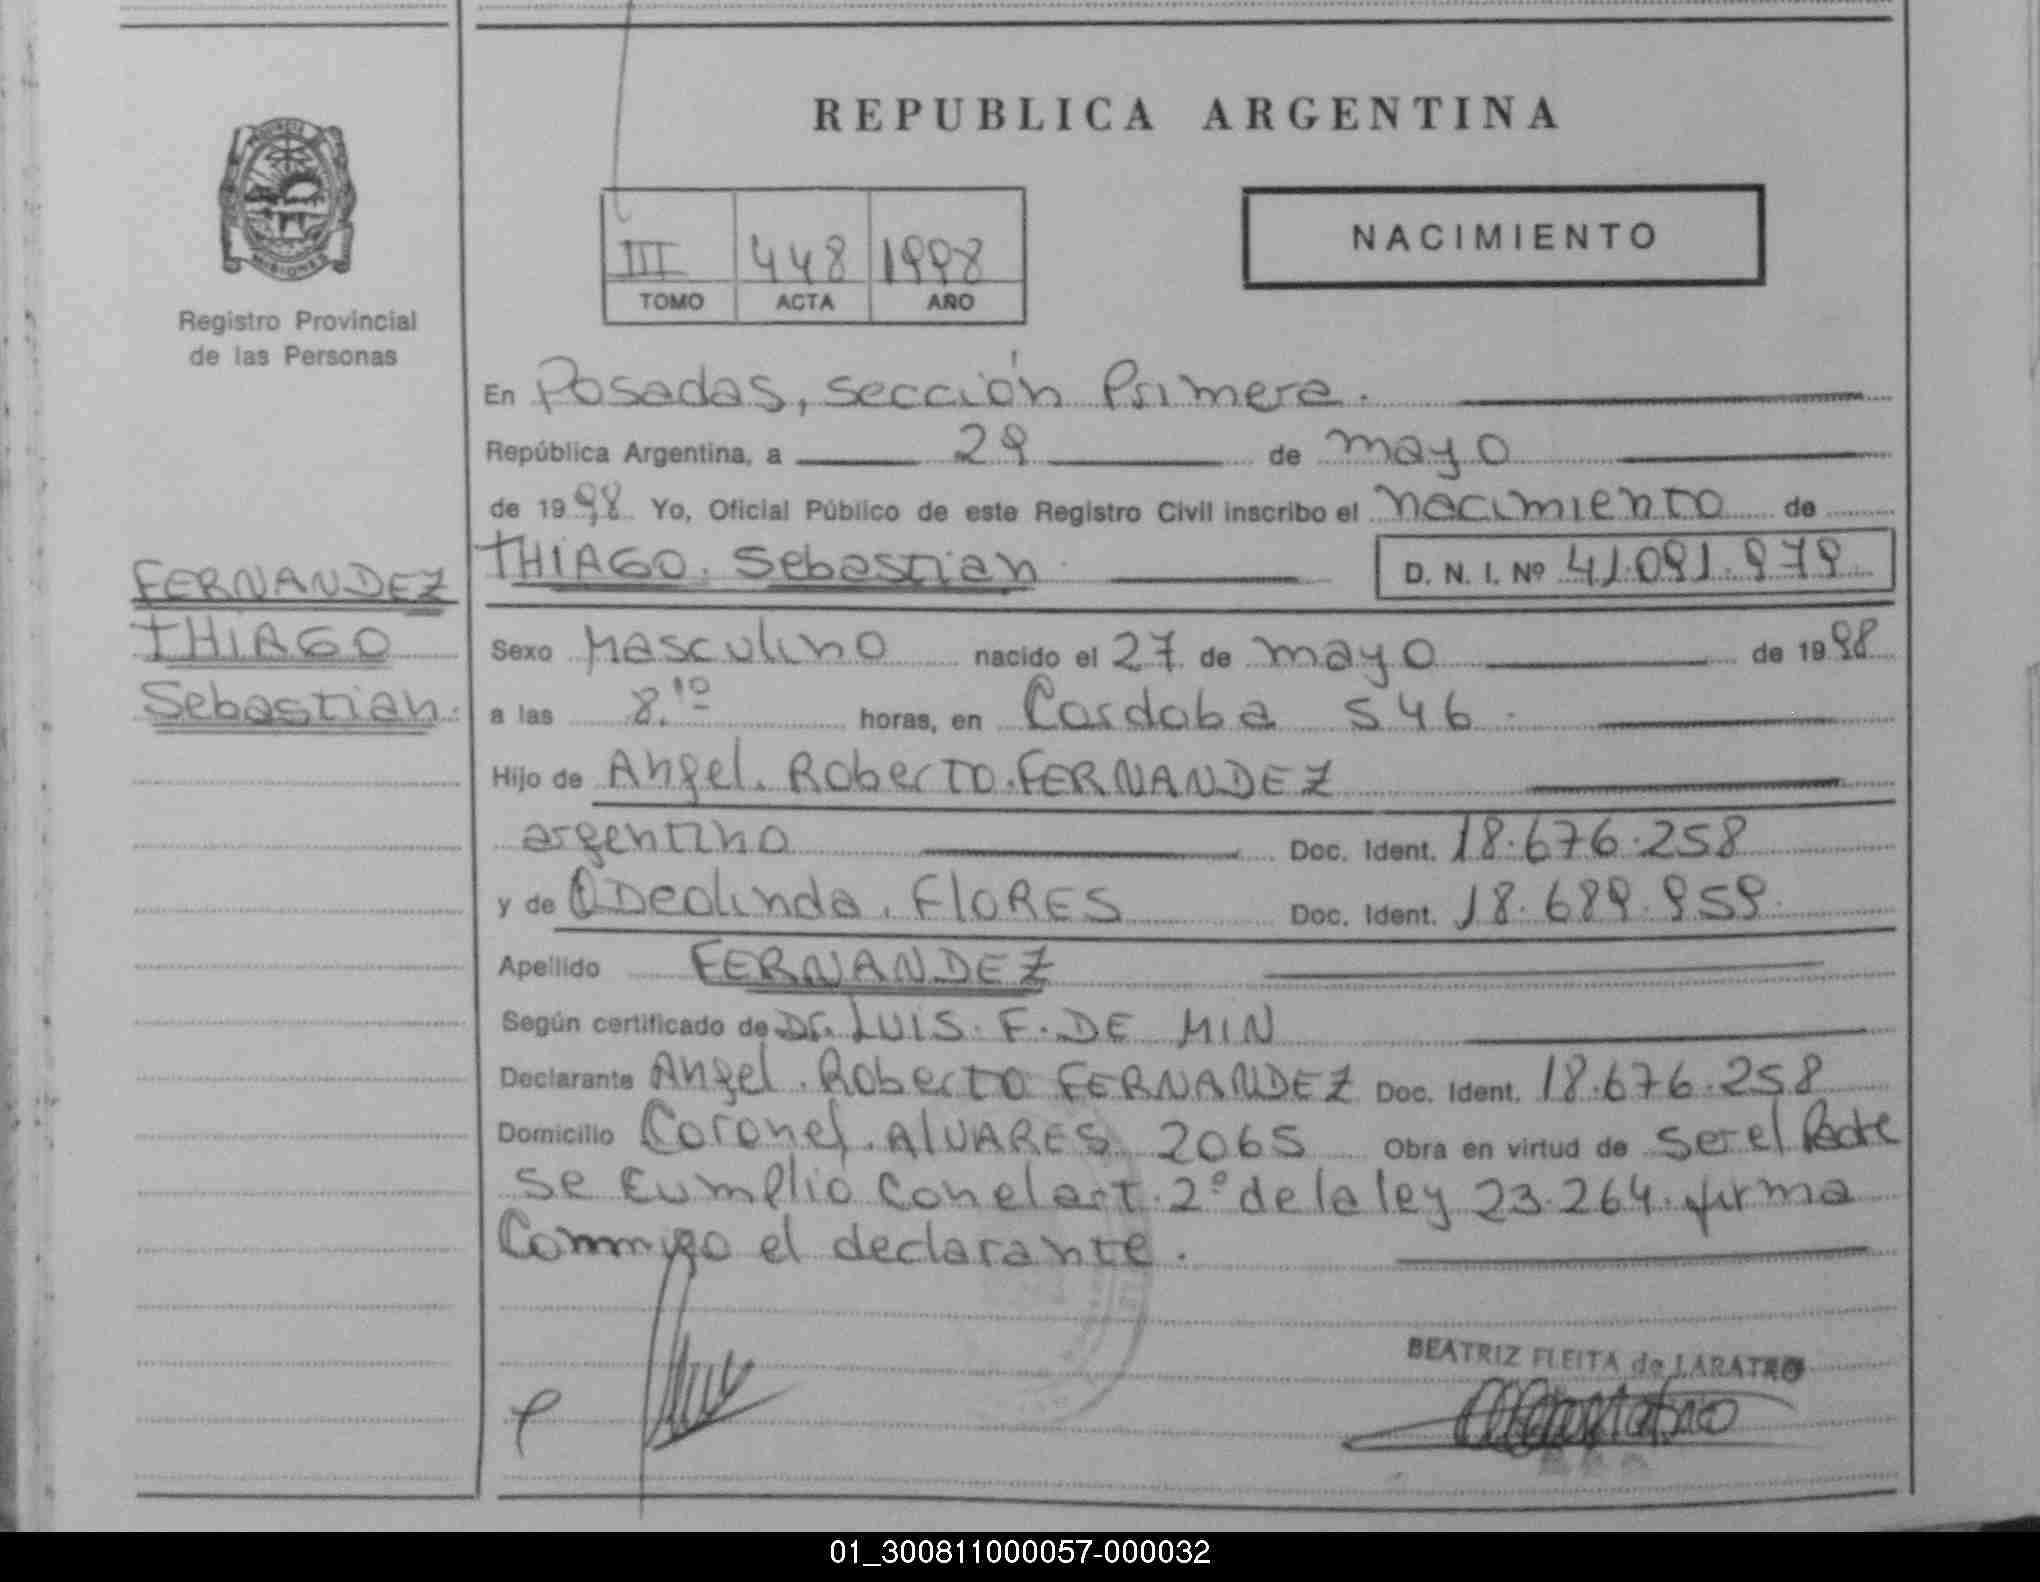 REPUBLICA ARGENTINA
MISIONES
Registro Provincial
de las Personas
III 448 1998
TOMO ACTA AÑO
NACIMIENTO
En Posadas, sección Primera.
República Argentina, a 29 de mayo
de 1998 Yo, Oficial Público de este Registro Civil inscribo el nacimiento de
THIAGO Sebastian D. N. I. Nº 41.091.979
FERNANDEZ
THIAGO
Sebastian.
Sexo Masculino nacido el 27 de mayo de 1998
a las 8.10 horas, en Cordoba 546.
Hijo de Angel. Roberto. FERNANDEZ
argentino Doc. Ident. 18.676.258
y de ODeolinda. FlORES Doc. Ident. 18.689.959.
Apellido FERNANDEZ
Según certificado de Dr. LUIS. F. DE MIN
Declarante Angel. Roberto FERNANDEZ Doc. Ident. 18.676.258
Domicilio Coronel. AlVARES 2065 Obra en virtud de ser el Padre
se cumplio con el art. 2º de la ley 23.264. firma
Conmigo el declarante.
BEATRIZ FLEITA de LARATRO
01_300811000057-000032